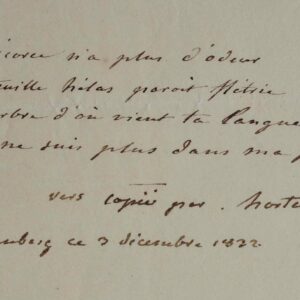 écorce n'a plus d'odeur
euille hélas paroit flétrie
arbre d'où vient ta langue
ne suis plus dans ma p
vers copié par . horte
enberg ce 3 décembre 1832